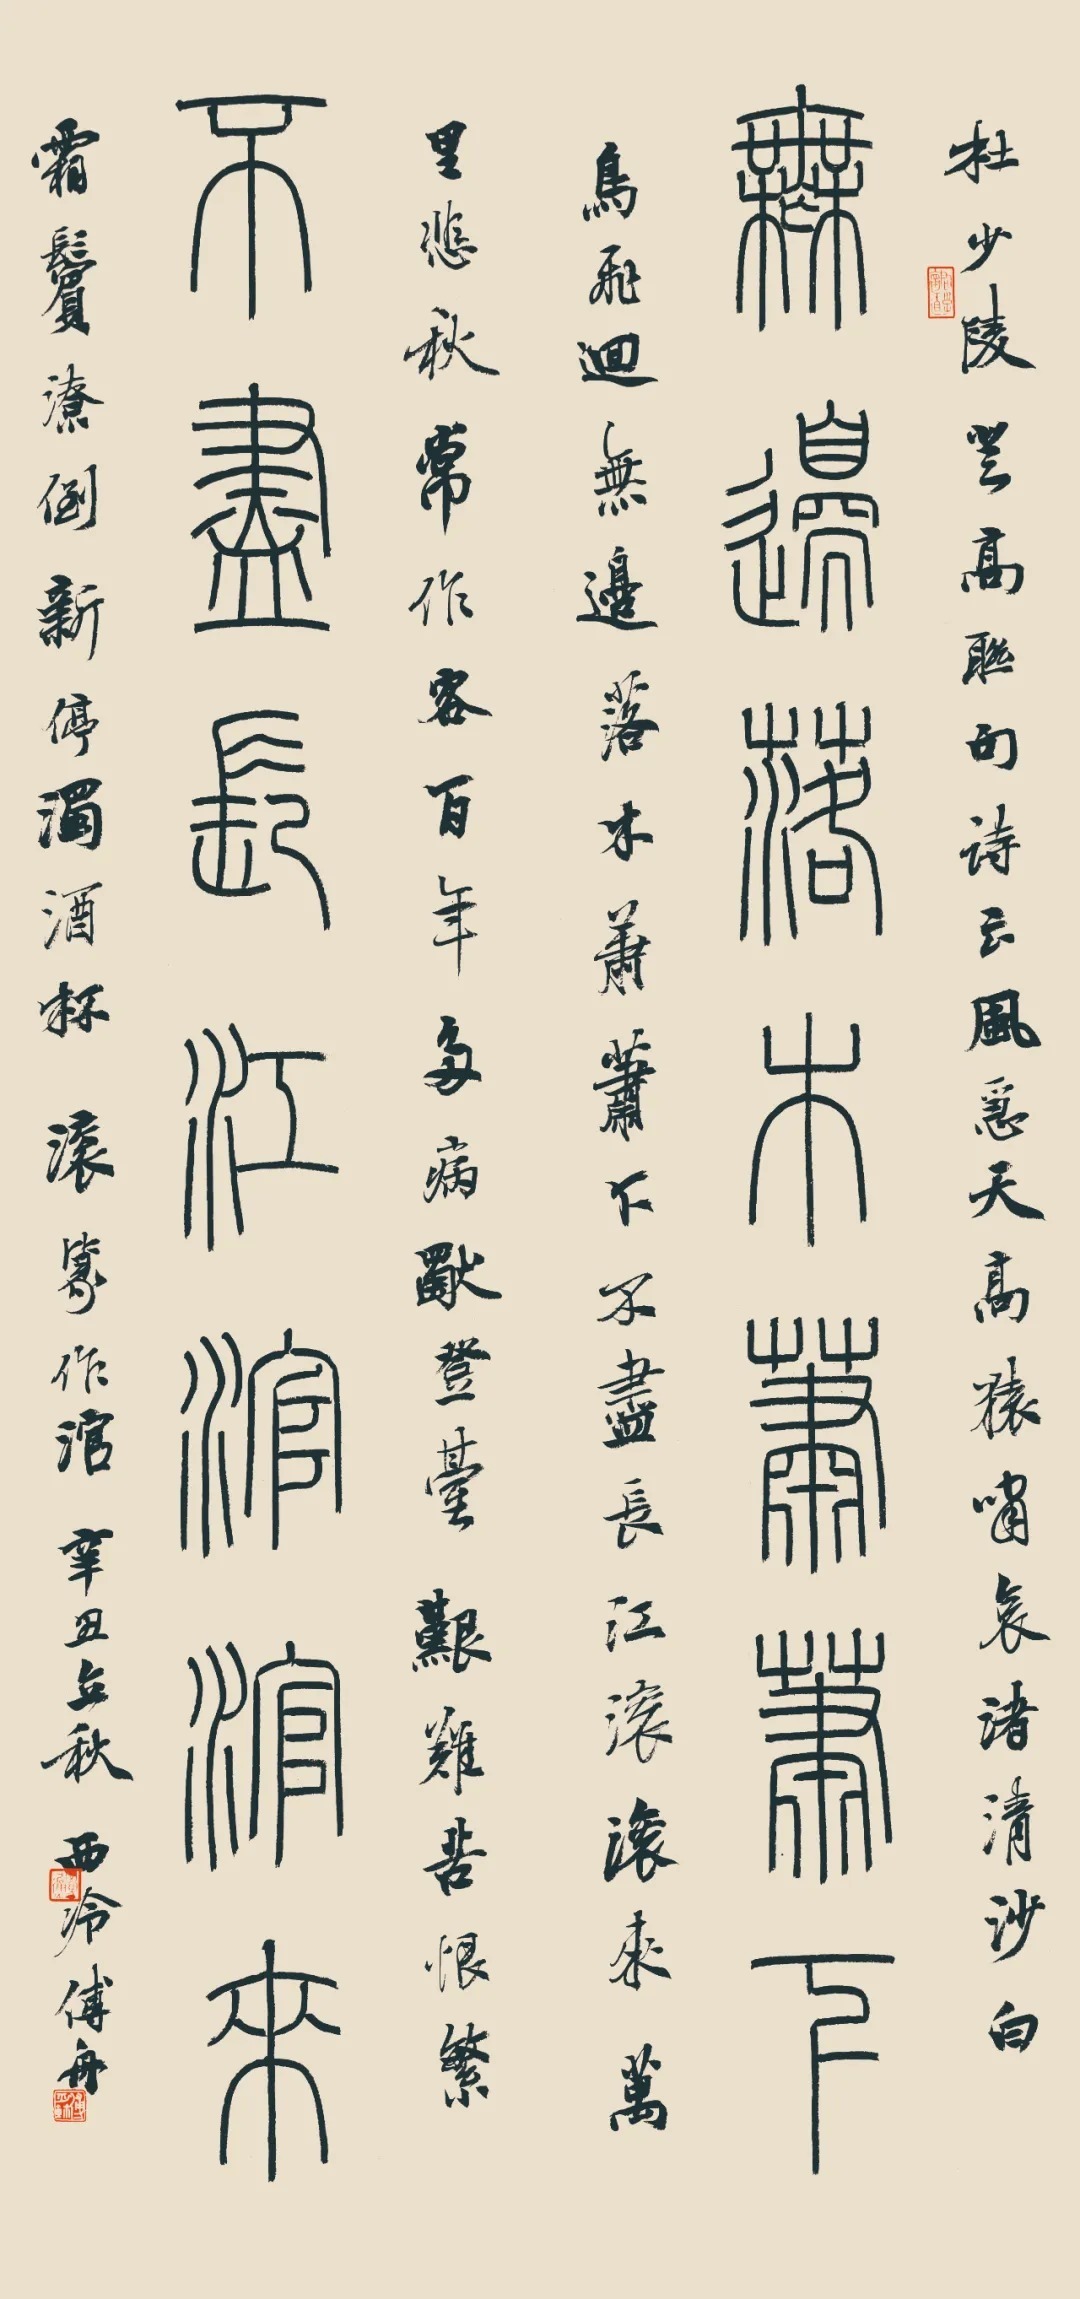 杜少陵登高聯句詩云風急天高猿嘯哀渚清沙白
無邊落木蕭蕭下
鳥飛迴無邊落木蕭蕭下不盡長江滾滾來萬
里悲秋常作客百年多病獨登臺艱難苦恨繁
不盡長江涫涫來
霜鬢潦倒新停濁酒杯滾篆作涫辛丑立秋西泠傅舟